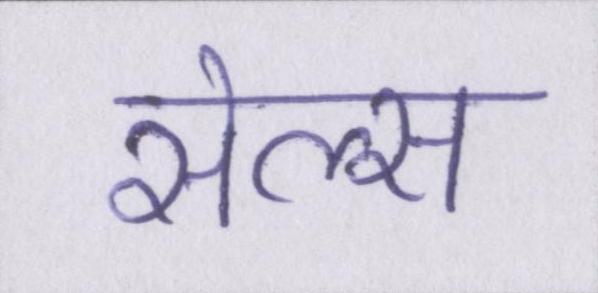 सेल्स